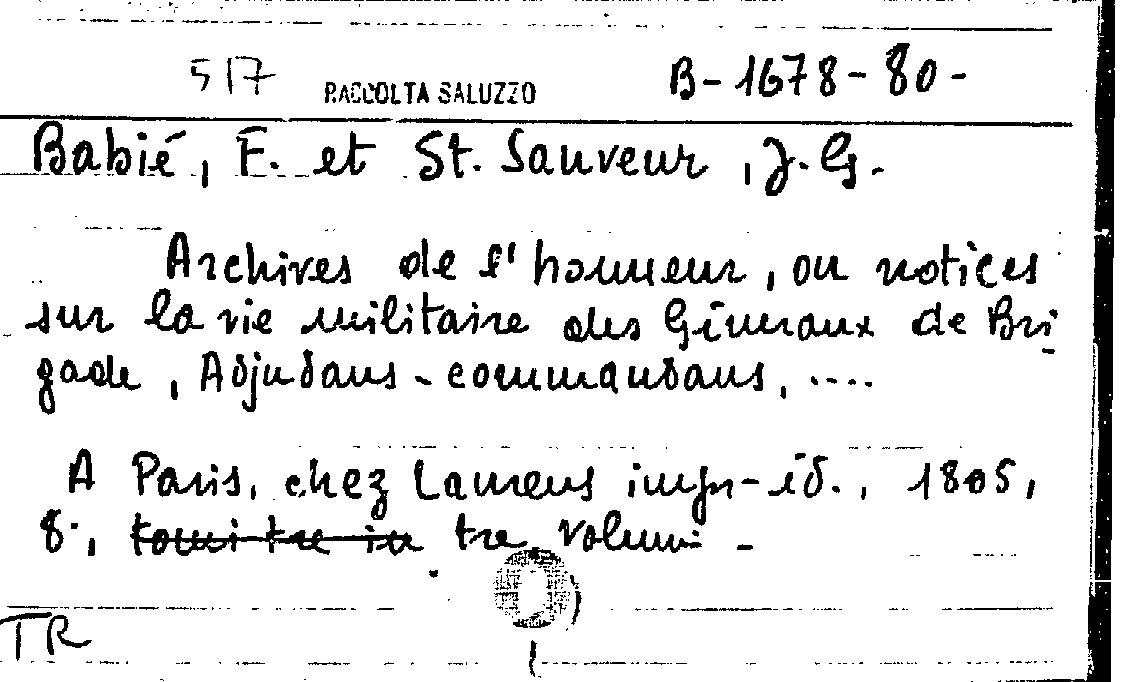 517 RACCOLTA SALUZZO B-1678-80-
Babié, F. et St. Sauveur, J. G.
Archives de l'honneur, ou notices
sur la vie militaire des Généraux de Bri
gade, Adjudans-commandans, ....
A Paris, chez Laurens impr-éd., 1805,
8°, tomi tre in tre volumi -
TR